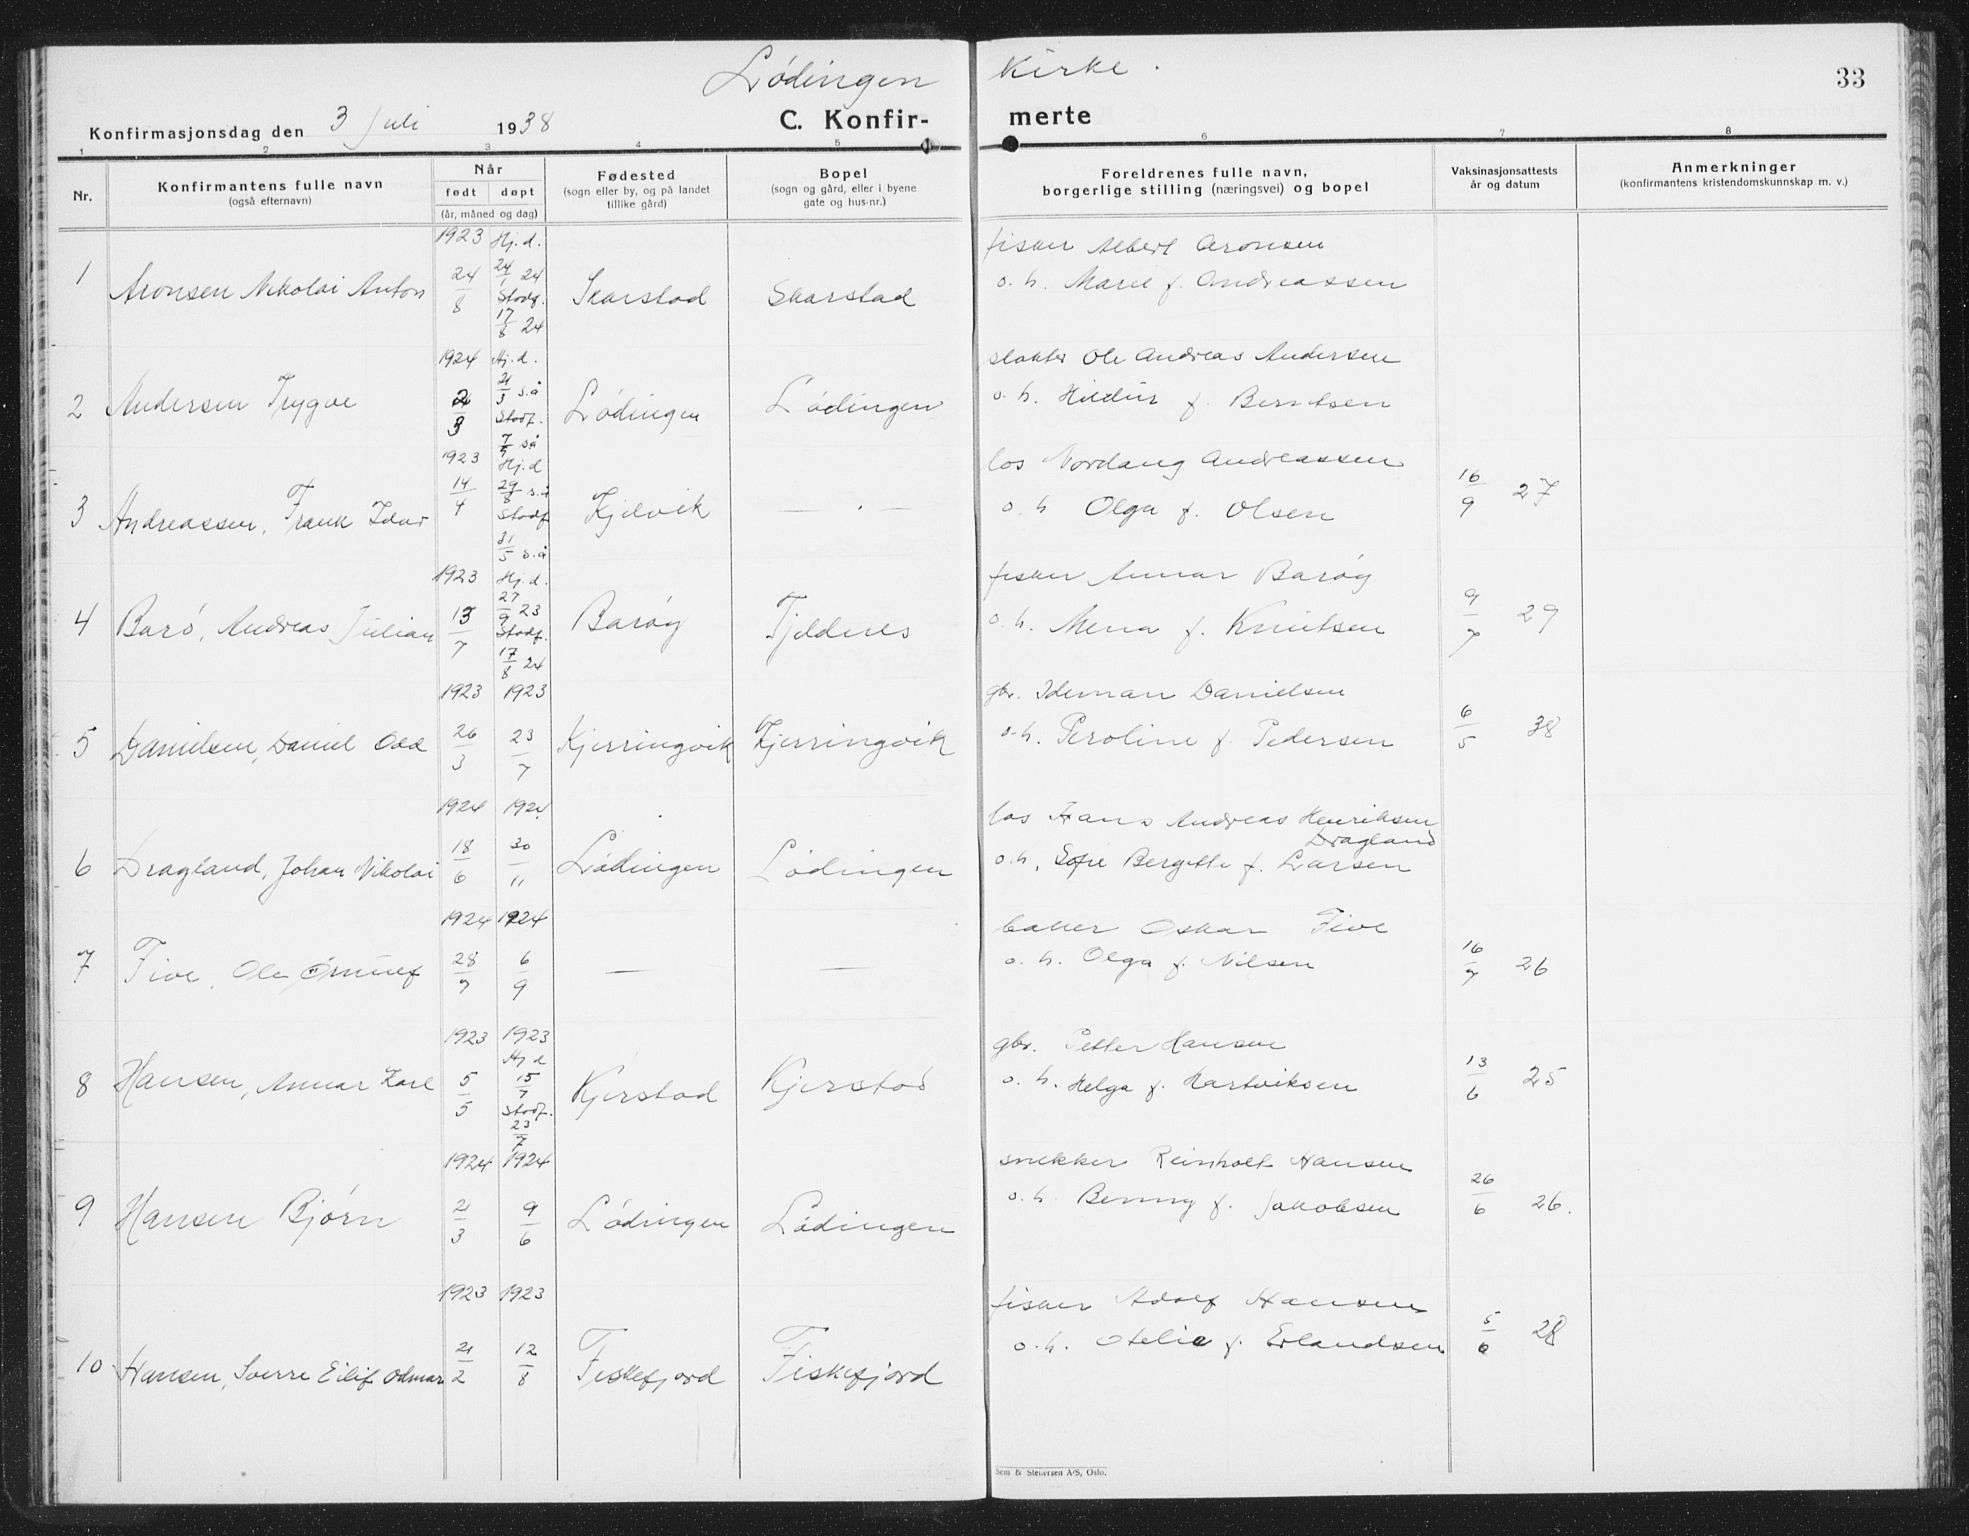 Lødingen Kirke.
33
Konfirmasjonsdag den 3 Juli 1938
C. Konfir-merte
1 2 3 4 5 6 7 8
Nr.
Konfirmantens fulle navn
(også efternavn)
Når
født døpt
(år, måned og dag)
Fødested
(sogn eller by, og på landet
tillike gård)
Bopel
(sogn og gård, eller i byene
gate og hus-nr.)
Foreldrenes fulle navn,
borgerlige stilling (næringsvei) og bopel
Vaksinasjonsattests
år og datum
Anmerkninger
(konfirmantens kristendomskunnskap m. v.)
1923 Hj.d. fisker Albert Aronsen
1 Aronsen Nikolai Anton 24/8 24/1 24 Skarstad Skarstad o. h. Marie f. Andreassen
Stadf.
17/8 24
1924 Hj.d. Ole Andreas Andersen
2 Andersen Trygve 2/3 21/3 s.å Lødingen Lødingen o. h. Hildur f. Berntsen
Stadf.
7/9 så
1923 Hj.d los Nordang Andreassen
3 Andreassen, Frank Idar 14/4 29/8 s.å Kjelvik — " — o. h Olga f. Olsen 16/9 27
Stadf
31/5 s.å
1923 Hj.d. fisker Annar Barøy
4 Barö, Andreas Julian 13/7 27/9 23 Barøy Tjeldnes o. h. Mena f. Knutsen 9/7 29
Stadf.
17/8 24
1923 1923 gbr. Ideman Danielsen
5 Danielsen, Daniel Odd 26/3 23/7 Kjerringvik Kjerringvik o. h. Peroline f. Pedersen 6/5 38
1924 1924 los Hans Andreas Henriksen
Dragland
6 Dragland, Johan Nikolai 18/6 30/11 Lødingen Lødingen o. h. Sofie Bergitte f. Larsen
1924 1924 baker Oskar Five
7 Five, Ole 28/7 6/9 — — o. h. Olga f. Nilsen 16/7 26
1923 1923 gbr. Petter Hansen
Hj d
8 Hansen, Annar Kare 5/5 15/7 Kjerstad Kjerstad o. h. Helga f. Hartviksen 13/6 25
Stadf.
23/7
1924 1924 snekker Reinholt Hansen
9 Hansen Bjørn 21/3 9/6 Lødingen Lødingen o. h. Benny f. Jakobsen 26/6 26.
1923 1923 fisker Adolf Hansen
10 Hansen, Sverre Eilif Odmar 21/2 12/8 Fiskefjord Fiskefjord o. h. Otelie f. Erlandsen 5/6 28
Sem & Stenersen A/S, Oslo.